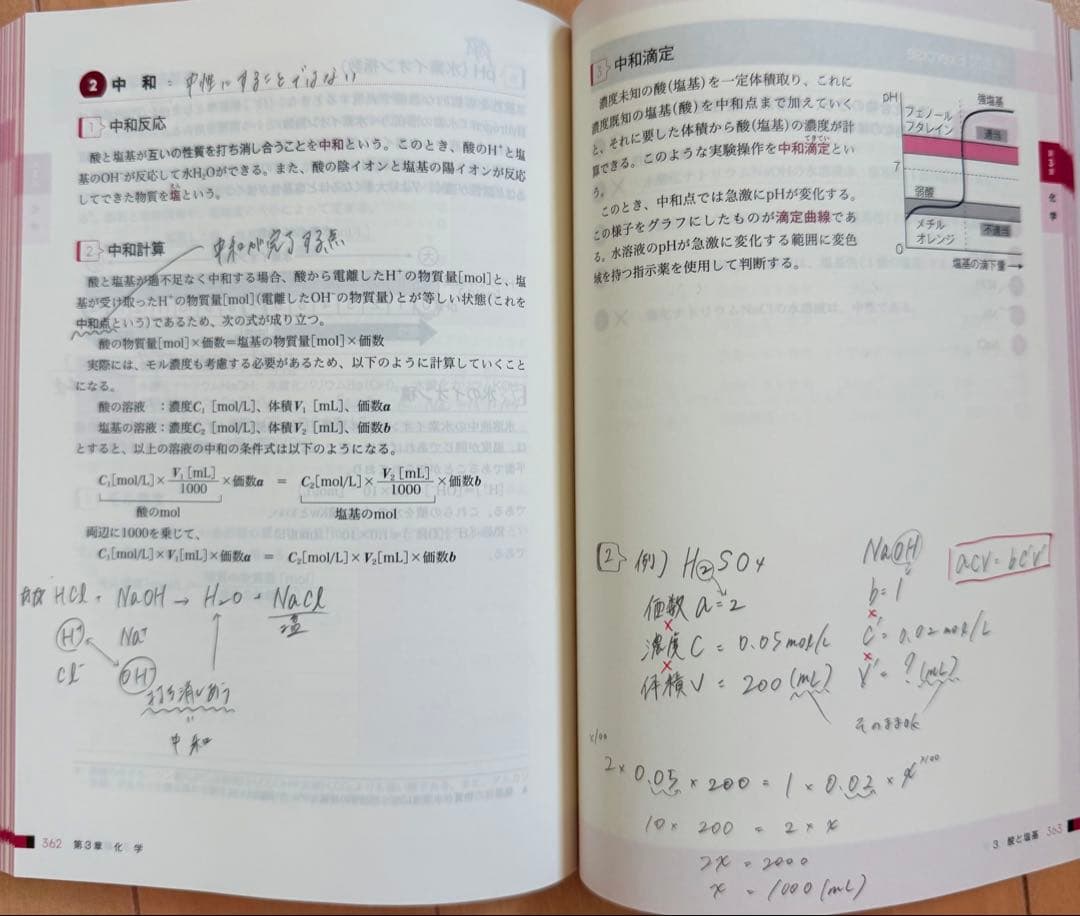 2 中和 : 中性にすることではない
1 中和反応
酸と塩基が互いの性質を打ち消し合うことを中和という。このとき、酸のH⁺と塩
基のOH⁻が反応して水H₂Oができる。また、酸の陰イオンと塩基の陽イオンが反応
してできた物質を塩という。
えん
2 中和計算
中和が完了する点
酸と塩基が過不足なく中和する場合、酸から電離したH⁺の物質量[mol]と、塩
基が受け取ったH⁺の物質量[mol](電離したOH⁻の物質量)とが等しい状態(これを
中和点という)であるため、次の式が成り立つ。
酸の物質量[mol]×価数=塩基の物質量[mol]×価数
実際には、モル濃度も考慮する必要があるため、以下のように計算していくこと
になる。
酸の溶液 :濃度C₁ [mol/L]、体積V₁ [mL]、価数a
塩基の溶液:濃度C₂ [mol/L]、体積V₂ [mL]、価数b
とすると、以上の溶液の中和の条件式は以下のようになる。
C₁[mol/L]×V₁[mL]/1000×価数a = C₂[mol/L]×V₂[mL]/1000×価数b
酸のmol 塩基のmol
両辺に1000を乗じて、
C₁[mol/L]×V₁[mL]×価数a = C₂[mol/L]×V₂[mL]×価数b
HCl + NaOH → H₂O + NaCl
塩
H⁺ Na⁺
Cl⁻ OH⁻
打ち消しあう
=
中和
362 第3章 化 学
3 中和滴定
濃度未知の酸(塩基)を一定体積取り、これに
濃度既知の塩基(酸)を中和点まで加えていく
と、それに要した体積から酸(塩基)の濃度が計
算できる。このような実験操作を中和滴定とい
てきてい
う。
このとき、中和点では急激にpHが変化する。
この様子をグラフにしたものが滴定曲線であ
る。水溶液のpHが急激に変化する範囲に変色
域を持つ指示薬を使用して判断する。
pH
強塩基
フェノール
フタレイン
適当
7
弱酸
メチル
オレンジ
不適当
0
塩基の滴下量→
第3章
化学
2 例) H₂SO₄ NaOH acv = bc'v'
価数 a = 2 b = 1
× ×
濃度 C = 0.05 mol/L c' = 0.02 mol/L
× ×
体積 V = 200 (mL) v' = ? (mL)
そのままok
×100 ×100
2 × 0.05 × 200 = 1 × 0.02 × x
10 × 200 = 2 × x
2x = 2000
x = 1000 (mL)
3 酸と塩基 363